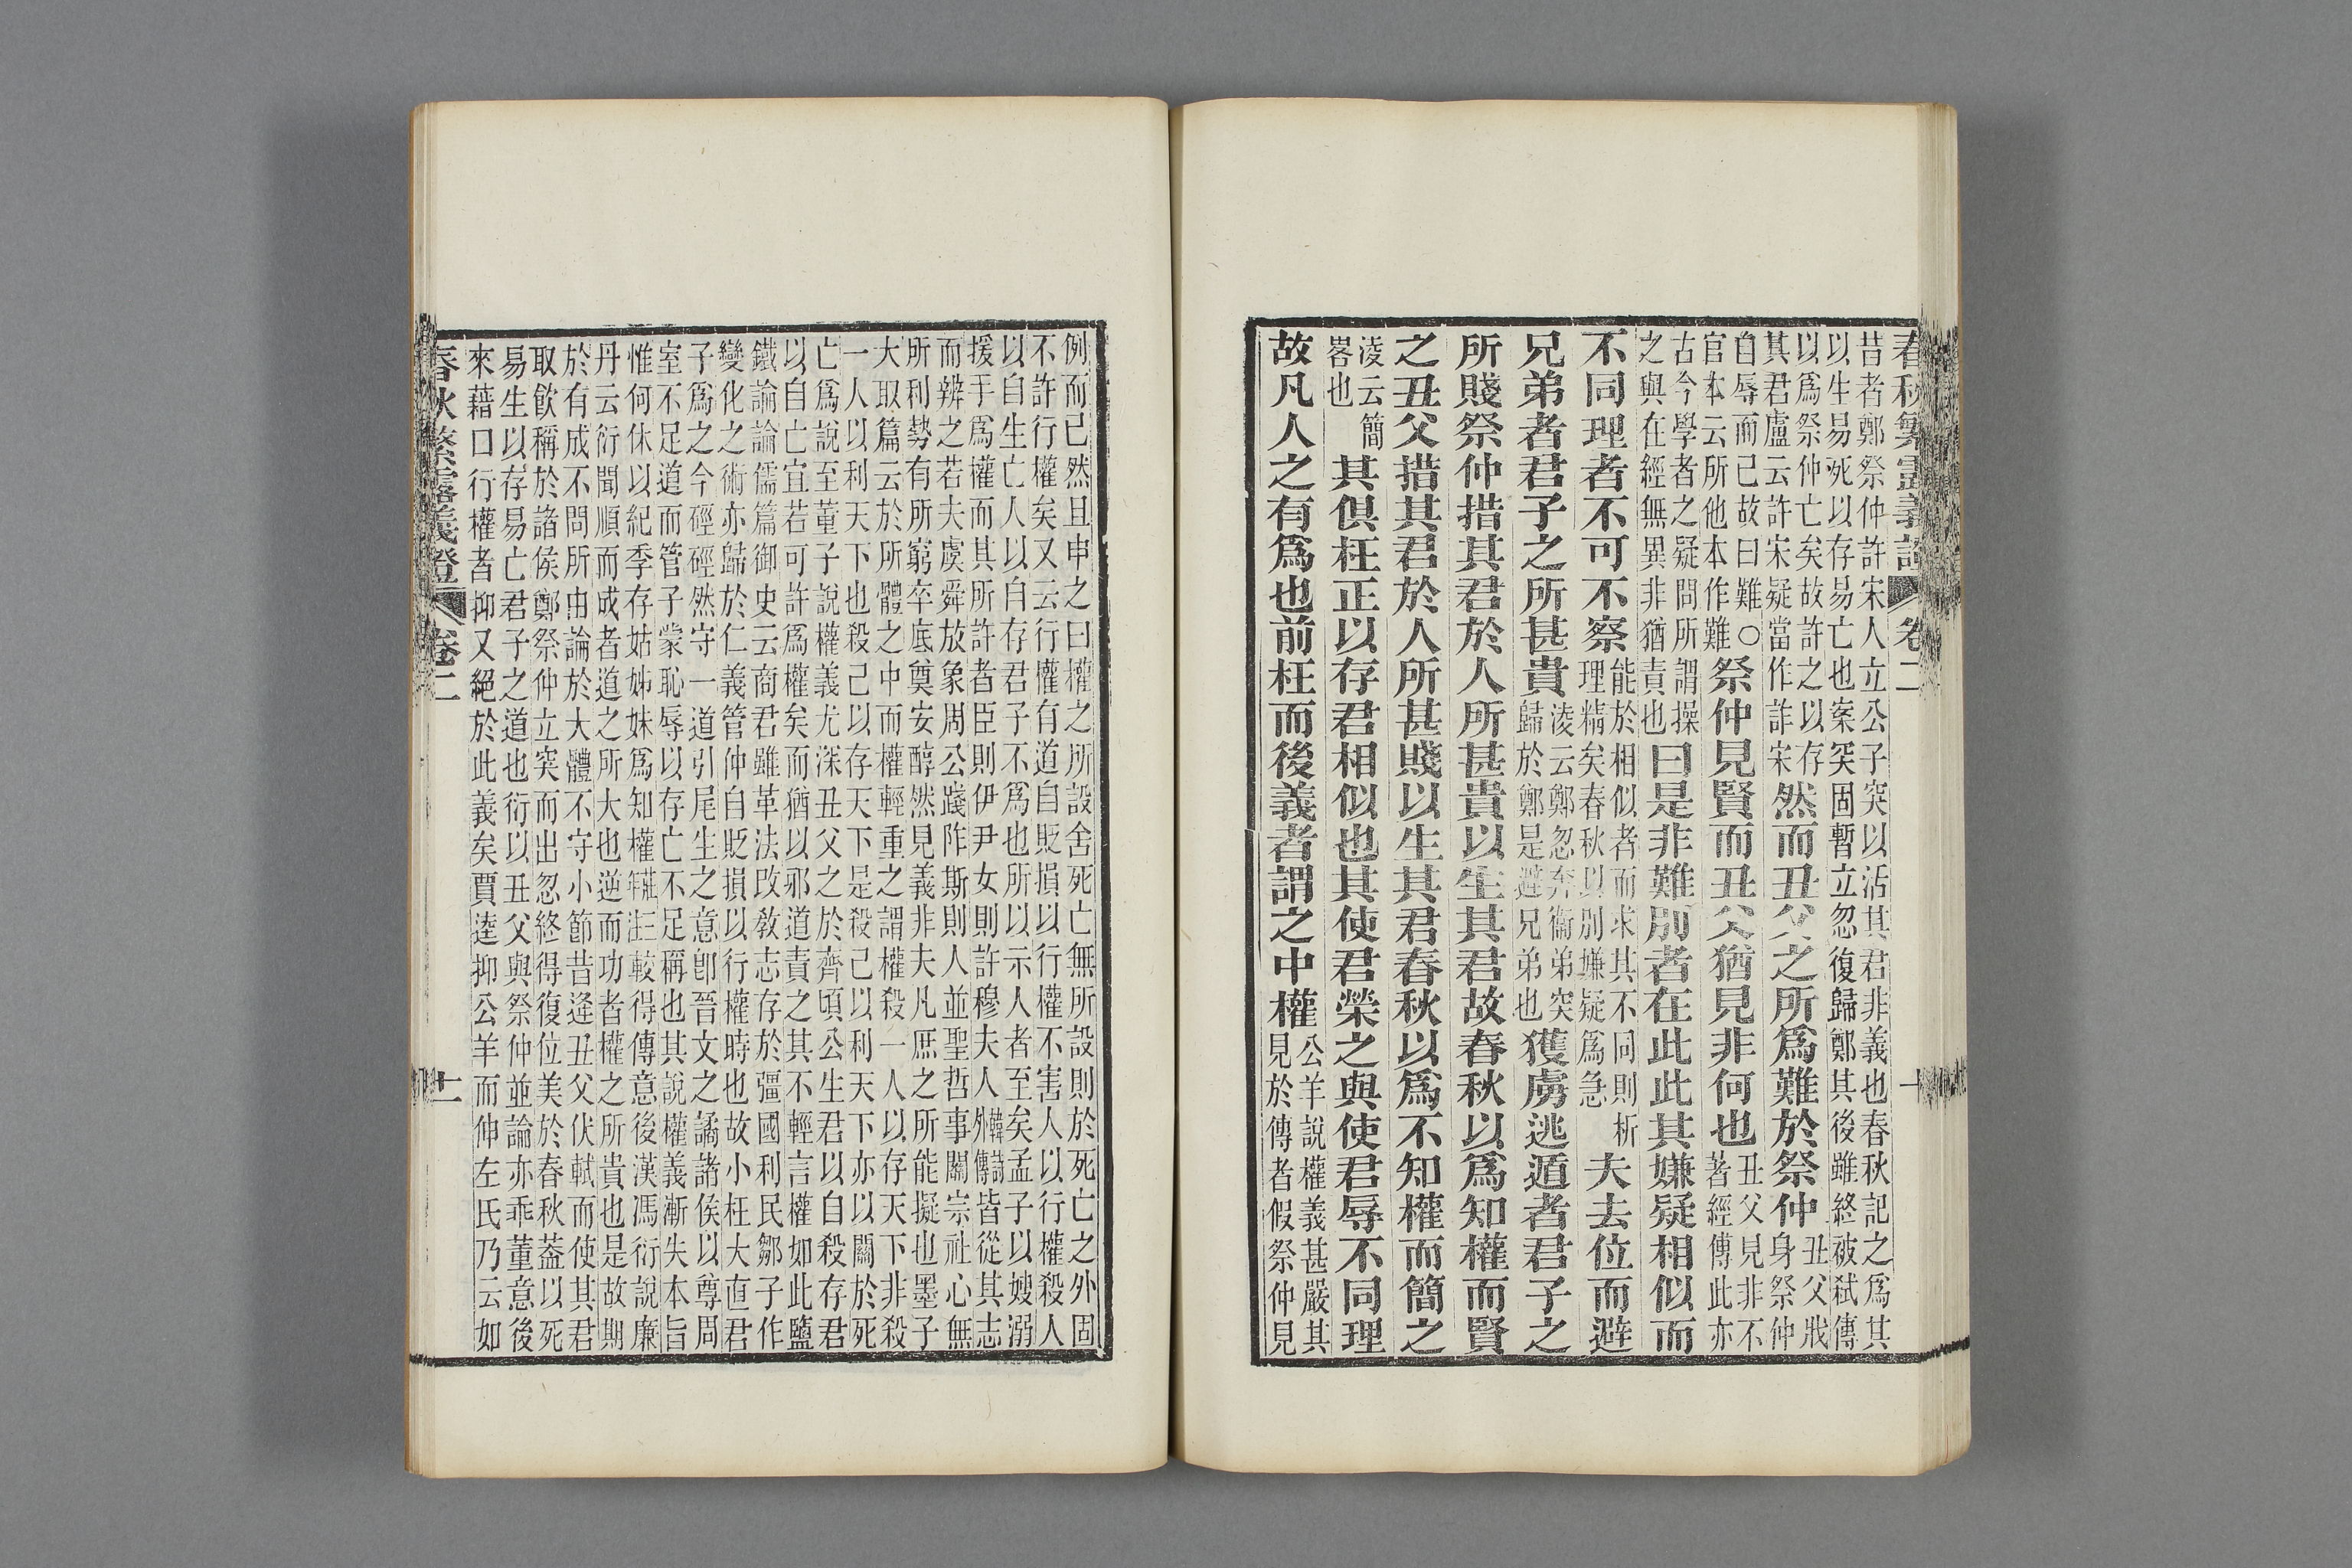 春秋繁露義證　卷二　十
昔者鄭祭仲許宋人立公子突以活其君非義也春秋記之爲其
以生易死以存易亡也案突固暫立忽復歸鄭其後雖終被弑傳
以爲祭仲亡矣故許之以存
其君盧云許宋疑當作詐宋
然而丑父之所爲難於祭仲
丑父戕
身祭仲
自辱而已故曰難○
官本云所他本作難
祭仲見賢而丑父猶見非何也
丑父見非不
著經傳此亦
古今學者之疑問所謂操
之與在經無異非猶責也
曰是非難別者在此此其嫌疑相似而
不同理者不可不察
能於相似者而求其不同則析
理精矣春秋以別嫌疑爲急
夫去位而避
兄弟者君子之所甚貴
淩云鄭忽奔衞弟突
歸於鄭是避兄弟也
獲虜逃遁者君子之
所賤祭仲措其君於人所甚貴以生其君故春秋以爲知權而賢
之丑父措其君於人所甚賤以生其君春秋以爲不知權而簡之
淩云簡
畧也
其俱枉正以存君相似也其使君榮之與使君辱不同理
故凡人之有爲也前枉而後義者謂之中權
公羊說權義甚嚴其
見於傳者假祭仲見
例而已然且申之曰權之所設舍死亡無所設則於死亡之外固
不許行權矣又云行權有道自貶損以行權不害人以行權殺人
以自生亡人以自存君子不爲也所以示人者至矣孟子以嫂溺
援手爲權而其所許者臣則伊尹女則許穆夫人韓詩外傳皆從其志
而辨之若夫虞舜放象周公踐阼斯則人並聖哲事關宗社心無
所利勢有所窮卒底奠安醇然見義非夫凡庶之所能擬也墨子
大取篇云於所體之中而權輕重之謂權殺一人以存天下非殺
一人以利天下也殺己以存天下是殺己以利天下亦以關於死
亡爲說至董子說權義尤深丑父之於齊頃公生君以自殺存君
以自亡宜若可許爲權矣而猶以邪道責之其不輕言權如此鹽
鐵論論儒篇御史云商君雖革法改敎志存於彊國利民鄒子作
變化之術亦歸於仁義管仲自貶損以行權時也故小枉大直君
子爲之今硜硜然守一道引尾生之意卽晉文之譎諸侯以尊周
室不足道而管子蒙恥辱以存亡不足稱也其說權義漸失本旨
惟何休以紀季存姑姊妹爲知權莊三年注較得傳意後漢馮衍說廉
丹云衍聞順而成者道之所大也逆而功者權之所貴也是故期
於有成不問所由論於大體不守小節昔逢丑父伏軾而使其君
取飮稱於諸侯鄭祭仲立突而出忽終得復位美於春秋葢以死
易生以存易亡君子之道也衍以丑父與祭仲並論亦乖董意後
來藉口行權者抑又絕於此義矣賈逵抑公羊而伸左氏乃云如
春秋繁露義證　卷二　十一